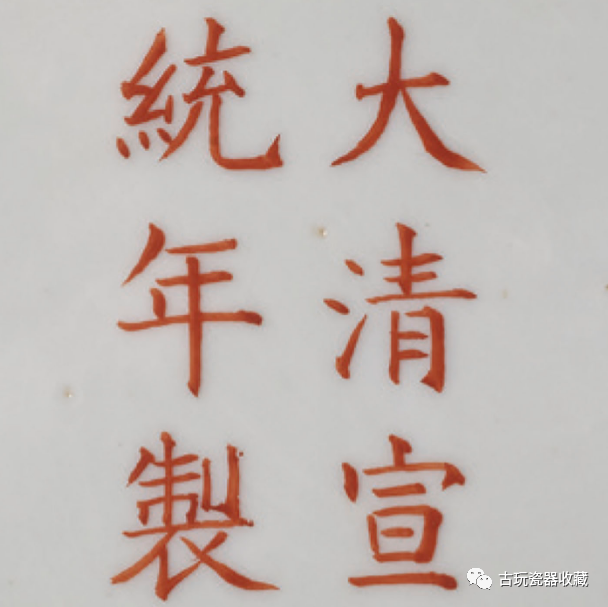 大清宣
統年製
古玩瓷器收藏